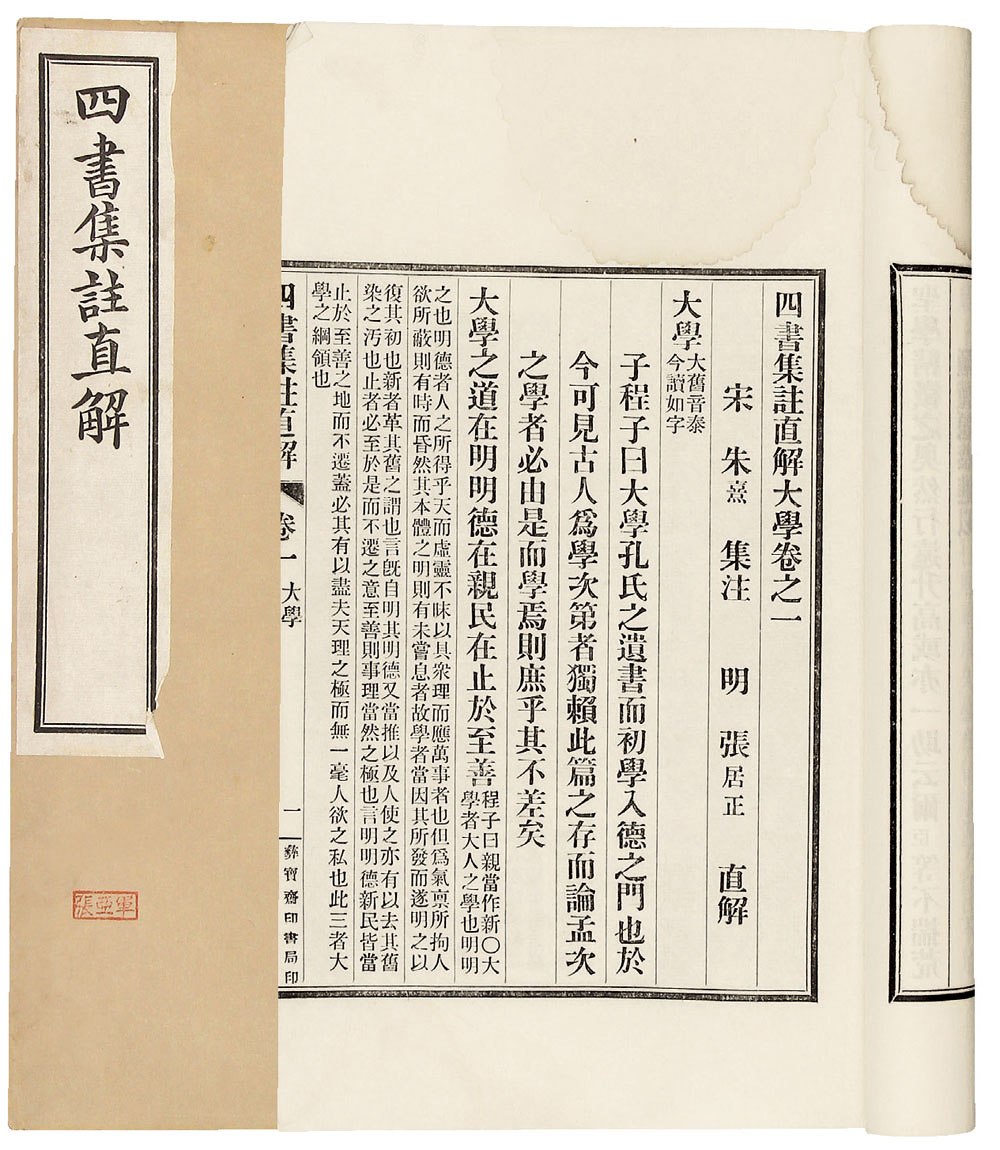 四書集註直解
張亞軍
四書集註直解大學卷之一
宋 朱熹 集注 明 張居正 直解
大學大舊音泰
今讀如字
子程子曰大學孔氏之遺書而初學入德之門也於
今可見古人爲學次第者獨賴此篇之存而論孟次
之學者必由是而學焉則庶乎其不差矣
大學之道在明明德在親民在止於至善程子曰親當作新〇大
學者大人之學也明明
之也明德者人之所得乎天而虛靈不昧以具衆理而應萬事者也但爲氣禀所拘人
欲所蔽則有時而昏然其本體之明則有未嘗息者故學者當因其所發而遂明之以
復其初也新者革其舊之謂也言旣自明其明德又當推以及人使之亦有以去其舊
染之汚也止者必至於是而不遷之意至善則事理當然之極也言明明德新民皆當
止於至善之地而不遷蓋必其有以盡夫天理之極而無一毫人欲之私也此三者大
學之綱領也
四書集註直解 卷一 大學 一 彝寶齋印書局印